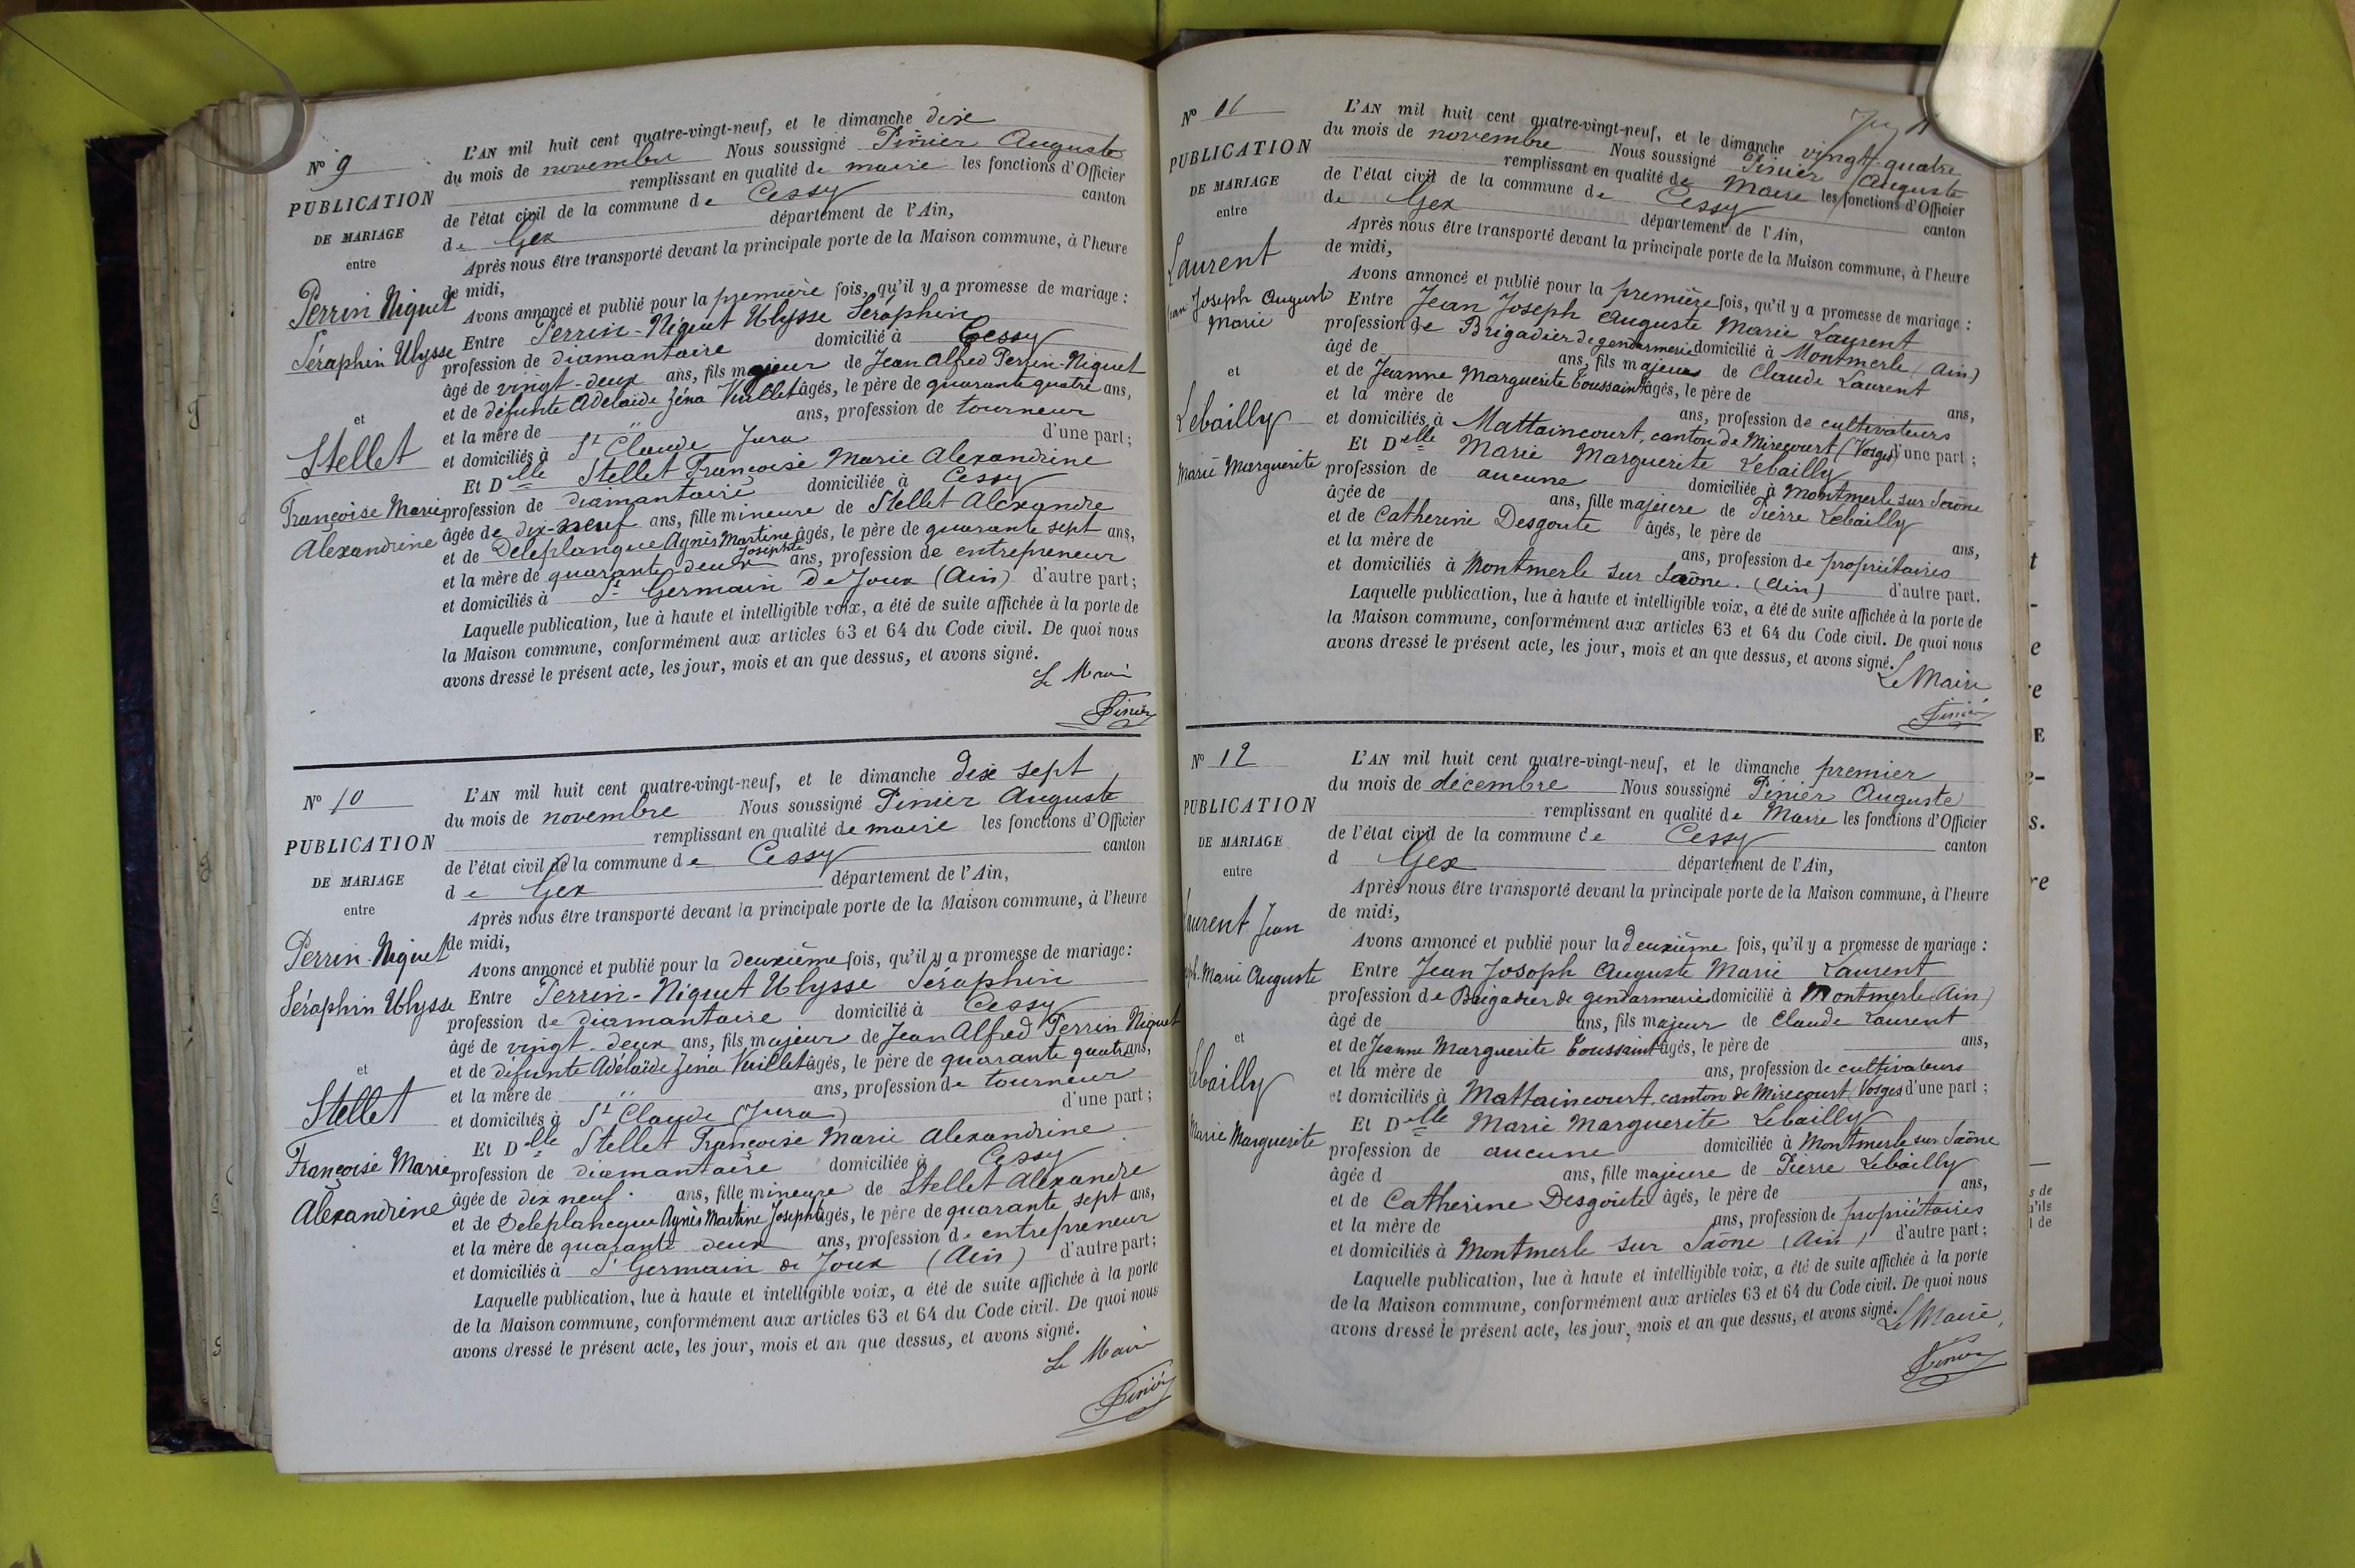 N° 9
PUBLICATION
DE MARIAGE
entre
Perrin Niguet
Séraphin Ulysse
et
Stellet
Françoise Marie
Alexandrine
L'AN mil huit cent quatre-vingt-neuf, et le dimanche dix
du mois de novembre Nous soussigné Pinier Auguste
remplissant en qualité de maire les fonctions d'Officier
de l'état civil de la commune de Cessy canton
de Gex département de l'Ain,
Après nous être transporté devant la principale porte de la Maison commune, à l'heure
de midi,
Avons annoncé et publié pour la première fois, qu'il y a promesse de mariage :
Entre Perrin-Niguet Ulysse Séraphin
profession de diamantaire domicilié à Cessy
âgé de vingt-deux ans, fils majeur de Jean Alfred Perrin-Niguet
et de défunte Adélaïde Zéna Vuillet âgés, le père de quarante quatre ans,
et la mère de " ans, profession de tourneur
et domiciliés à St Claude Jura d'une part ;
Et Delle Stellet Françoise Marie Alexandrine
profession de diamantaire domiciliée à Cessy
âgée de dix-neuf ans, fille mineure de Stellet Alexandre
et de Deleplanque Agnès Martine Josephte âgés, le père de quarante sept ans,
et la mère de quarante-deux ans, profession de entrepreneur
et domiciliés à St Germain de Joux (Ain) d'autre part ;
Laquelle publication, lue à haute et intelligible voix, a été de suite affichée à la porte de
la Maison commune, conformément aux articles 63 et 64 du Code civil. De quoi nous
avons dressé le présent acte, les jour, mois et an que dessus, et avons signé.
Le Maire
Pinier
N° 10
PUBLICATION
DE MARIAGE
entre
Perrin-Niguet
Séraphin Ulysse
et
Stellet
Françoise Marie
Alexandrine
L'AN mil huit cent quatre-vingt-neuf, et le dimanche dix sept
du mois de novembre Nous soussigné Pinier Auguste
remplissant en qualité de maire les fonctions d'Officier
de l'état civil de la commune de Cessy canton
de Gex département de l'Ain,
Après nous être transporté devant la principale porte de la Maison commune, à l'heure
de midi,
Avons annoncé et publié pour la deuxième fois, qu'il y a promesse de mariage :
Entre Perrin-Niguet Ulysse Séraphin
profession de diamantaire domicilié à Cessy
âgé de vingt-deux ans, fils majeur de Jean Alfred Perrin Niguet
et de défunte Adélaïde Zéna Vuillet âgés, le père de quarante quatre ans,
et la mère de " ans, profession de tourneur
et domiciliés à St Claude (Jura) d'une part ;
Et Delle Stellet Françoise Marie Alexandrine
profession de diamantaire domiciliée à Cessy
âgée de dix neuf ans, fille mineure de Stellet Alexandre
et de Deleplancque Agnès Martine Josephte âgés, le père de quarante sept ans,
et la mère de quarante deux ans, profession de entrepreneur
et domiciliés à St Germain de Joux (Ain) d'autre part ;
Laquelle publication, lue à haute et intelligible voix, a été de suite affichée à la porte
de la Maison commune, conformément aux articles 63 et 64 du Code civil. De quoi nous
avons dressé le présent acte, les jour, mois et an que dessus, et avons signé.
Le Maire
Pinier
N° 11
PUBLICATION
DE MARIAGE
entre
Laurent
Jean Joseph Auguste
Marie
et
Lebailly
Marie Marguerite
L'AN mil huit cent quatre-vingt-neuf, et le dimanche vingt-quatre
du mois de novembre Nous soussigné Pinier Auguste
remplissant en qualité de Maire les fonctions d'Officier
de l'état civil de la commune de Cessy canton
de Gex département de l'Ain,
Après nous être transporté devant la principale porte de la Maison commune, à l'heure
de midi,
Avons annoncé et publié pour la première fois, qu'il y a promesse de mariage :
Entre Jean Joseph Auguste Marie Laurent
profession de Brigadier de gendarmerie domicilié à Montmerle (Ain)
âgé de ans, fils majeur de Claude Laurent
et de Jeanne Marguerite Toussaint âgés, le père de ans,
et la mère de ans, profession de cultivateurs
et domiciliés à Mattaincourt, canton de Mirecourt (Vosges) d'une part ;
Et Delle Marie Marguerite Lebailly
profession de aucune domiciliée à Montmerle sur Saône
âgée de ans, fille majeure de Pierre Lebailly
et de Catherine Desgoute âgés, le père de ans,
et la mère de ans, profession de propriétaires
et domiciliés à Montmerle sur Saône. (Ain) d'autre part.
Laquelle publication, lue à haute et intelligible voix, a été de suite affichée à la porte de
la Maison commune, conformément aux articles 63 et 64 du Code civil. De quoi nous
avons dressé le présent acte, les jour, mois et an que dessus, et avons signé.
Le Maire
Pinier
N° 12
PUBLICATION
DE MARIAGE
entre
Laurent Jean
Marie Auguste
et
Lebailly
Marie Marguerite
L'AN mil huit cent quatre-vingt-neuf, et le dimanche premier
du mois de décembre Nous soussigné Pinier Auguste
remplissant en qualité de Maire les fonctions d'Officier
de l'état civil de la commune de Cessy canton
d Gex département de l'Ain,
Après nous être transporté devant la principale porte de la Maison commune, à l'heure
de midi,
Avons annoncé et publié pour la deuxième fois, qu'il y a promesse de mariage :
Entre Jean Josoph Auguste Marie Laurent
profession de Brigadier de gendarmerie domicilié à Montmerle (Ain)
âgé de ans, fils majeur de Claude Laurent
et de Jeanne Marguerite Toussaint âgés, le père de ans,
et la mère de ans, profession de cultivateurs
et domiciliés à Mattaincourt, canton de Mirecourt (Vosges) d'une part ;
Et Delle Marie Marguerite Lebailly
profession de aucune domiciliée à Montmerle sur Saône
âgée d ans, fille majeure de Pierre Lebailly
et de Catherine Desgoute âgés, le père de ans,
et la mère de ans, profession de propriétaires
et domiciliés à Montmerle sur Saône (Ain) d'autre part ;
Laquelle publication, lue à haute et intelligible voix, a été de suite affichée à la porte
de la Maison commune, conformément aux articles 63 et 64 du Code civil. De quoi nous
avons dressé le présent acte, les jour, mois et an que dessus, et avons signé.
Le Maire
Pinier